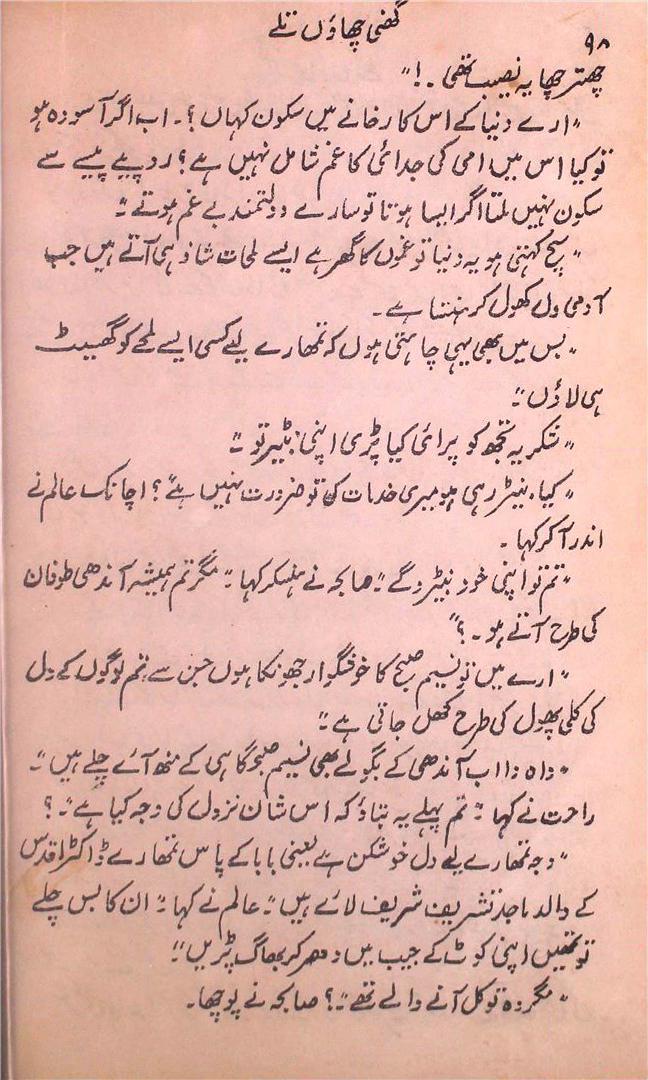 گھنی چھاؤں تلے
۹۸
چھتر چھایہ نصیب تھی ۔!"
"ارے دنیا کے اس کارخانے میں سکون کہاں ؟۔ اب اگر آسودہ ہو
تو کیا اس میں امی کی جدائی کا غم شامل نہیں ہے؟ روپیے پیسے سے
سکون نہیں ملتا اگر ایسا ہوتا تو سارے دولتمند بے غم ہوتے۔"
"سچ کہتی ہو یہ دنیا تو غموں کا گھر ہے ایسے لمحات شاذ ہی آتے ہیں جب
آدمی دل کھول کر ہنستا ہے۔
"بس میں بھی یہی چاہتی ہوں کہ تمھارے لیے کسی ایسے لمحے کو گھسیٹ
ہی لاؤں۔"
"شکریہ تجھ کو پرائی کیا پڑی اپنی نبٹیر تو۔"
"کیا نبیٹر رہی ہو میری خدمات کی تو ضرورت نہیں ہے؟ اچانک عالم نے
اندر آکر کہا۔
"تم تو اپنی خود نبیٹرو گے۔" صابحہ نے ہنسکر کہا۔" مگر تم ہمیشہ آندھی طوفان
کی طرح آتے ہو۔؟"
"ارے میں تو نسیم صبح کا خوشگوار جھونکا ہوں جس سے تم لوگوں کے دل
کی کلی پھول کی طرح کھل جاتی ہے۔"
"واہ وا اب آندھی کے بگولے بھی نسیم صبحگاہی کے منھ آئے چلے ہیں۔"
راحت نے کہا۔" تم پہلے یہ بتاؤ کہ اس شان نزول کی وجہ کیا ہے۔"؟
"وجہ تمھارے لیے دل خوشکن ہے یعنی بابا کے پاس تمھارے ڈاکٹر اقدس
کے والد ماجد تشریف شریف لائے ہیں۔" عالم نے کہا۔" ان کا بس چلے
تو تمھیں اپنی کوٹ کے جیب میں دھر کر بھاگ پڑیں۔"
"مگر وہ تو کل آنے والے تھے۔"؟ صابحہ نے پوچھا۔